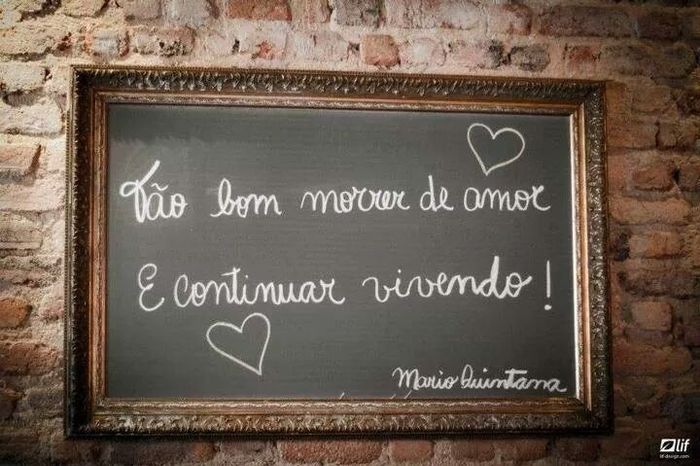 Tão bom morrer de amor
E continuar vivendo!
Mario Quintana
lif
lif-design.com